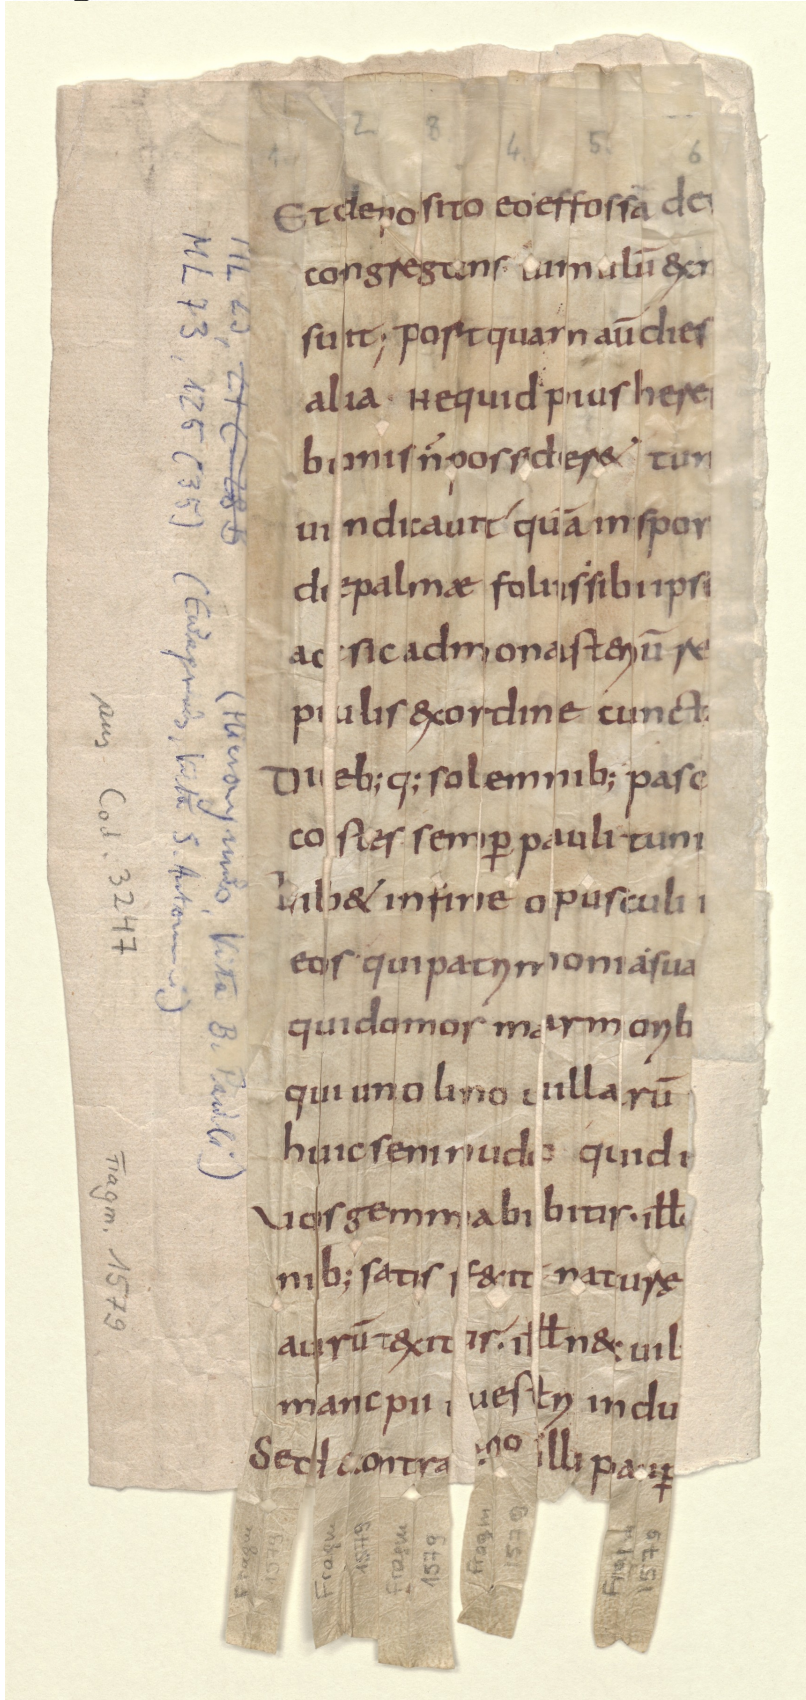 2 8
4 5
6
Et deposito eo effossā de
congregans tumulū &
suit; postquam aū dies
alia. Ne quid pius here
bonis n̄ possider& tun
uindicauit quā in spor
de palmæ foliis sibi ipsi
ac sic ad monasteriū re
pulis & ordine cunct
Dieb;q; solemnib; pasc
co stes semp̄ pauli tuni
Lib& in fine opusculi
eos qui patrimonia sua
qui domos marmorib
qui uno lino uillarū
huic seminudo quid
Vos gemma bibitis. ill
nib; satis fecit naturę
aurū texitis. ill n& uil
mancpii uestri indu
Sed contra illi paup̄
(Hieronymus, Vita B. Pauli)
ML 73, 126 (75) (Euagrius, Vita S. Antonii)
aus Cod. 3247
Fragm. 1579
Fragm 1579
Fragm 1579
Fragm 1579
Fragm 1579
Fragm 1579